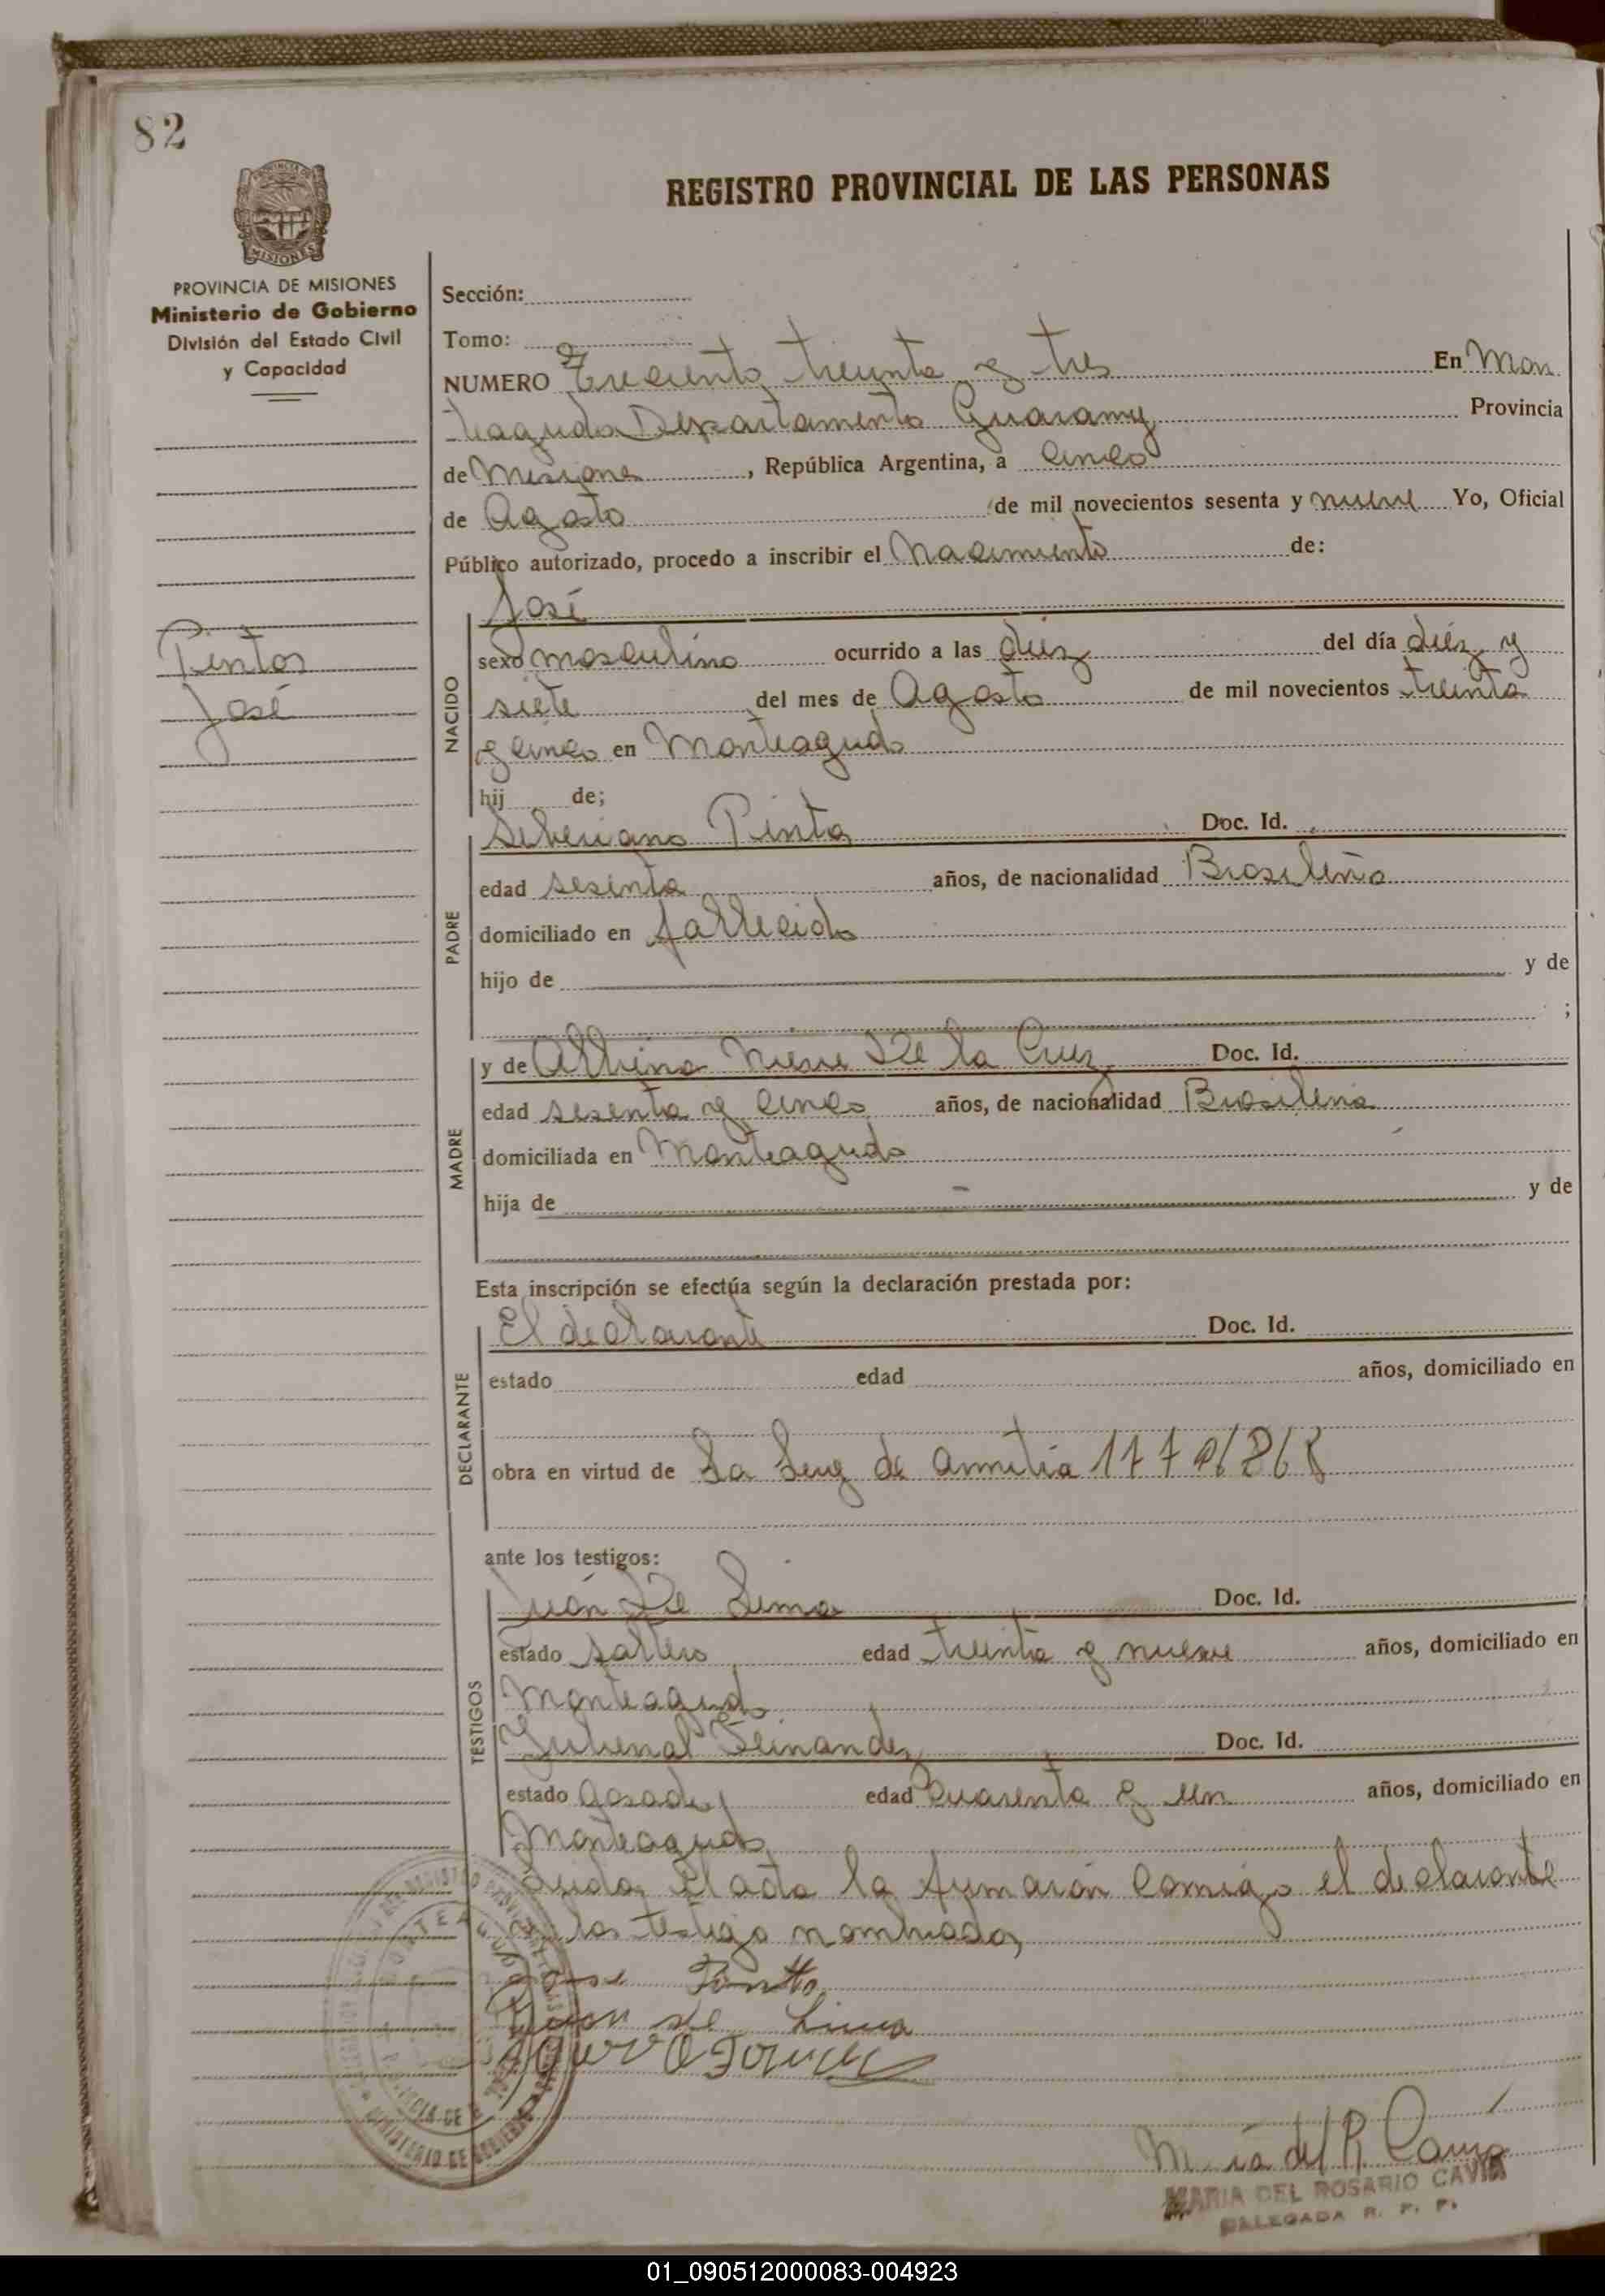 82
PROVINCIA DE MISIONES
Ministerio de Gobierno
División del Estado Civil
y Capacidad
Pintos
José
REGISTRO PROVINCIAL DE LAS PERSONAS
Sección:
Tomo:
NUMERO Treciento treinta y tres En Mon
teagudo Departamento Guarany Provincia
de Misiones, República Argentina, a cinco
de Agosto de mil novecientos sesenta y nueve Yo, Oficial
Público autorizado, procedo a inscribir el Nacimiento de:
José
NACIDO
sexo masculino ocurrido a las diez del día diéz y
siete del mes de Agosto de mil novecientos treinta
y cinco en Monteagudo
hij de;
PADRE
Seberiano Pinto Doc. Id.
edad sesenta años, de nacionalidad Brasileño
domiciliado en fallecido
hijo de y de
;
MADRE
y de De la Cruz Doc. Id.
edad sesenta y cinco años, de nacionalidad Brasilena
domiciliada en Monteagudo
hija de y de
Esta inscripción se efectúa según la declaración prestada por:
DECLARANTE
El declarante Doc. Id.
estado edad años, domiciliado en
obra en virtud de La Ley de
ante los testigos:
TESTIGOS
Juan De Lima Doc. Id.
estado soltero edad treinta y nueve años, domiciliado en
Monteagudo
Fernandez Doc. Id.
estado casado edad Cuarenta y un años, domiciliado en
Monteagudo
el acta la conmigo el declarante
y los testigo nombrado
Jose Pinto
Juan de Lima
MARIA DEL ROSARIO CAVIA
DELEGADA R. P. P.
01_090512000083-004923